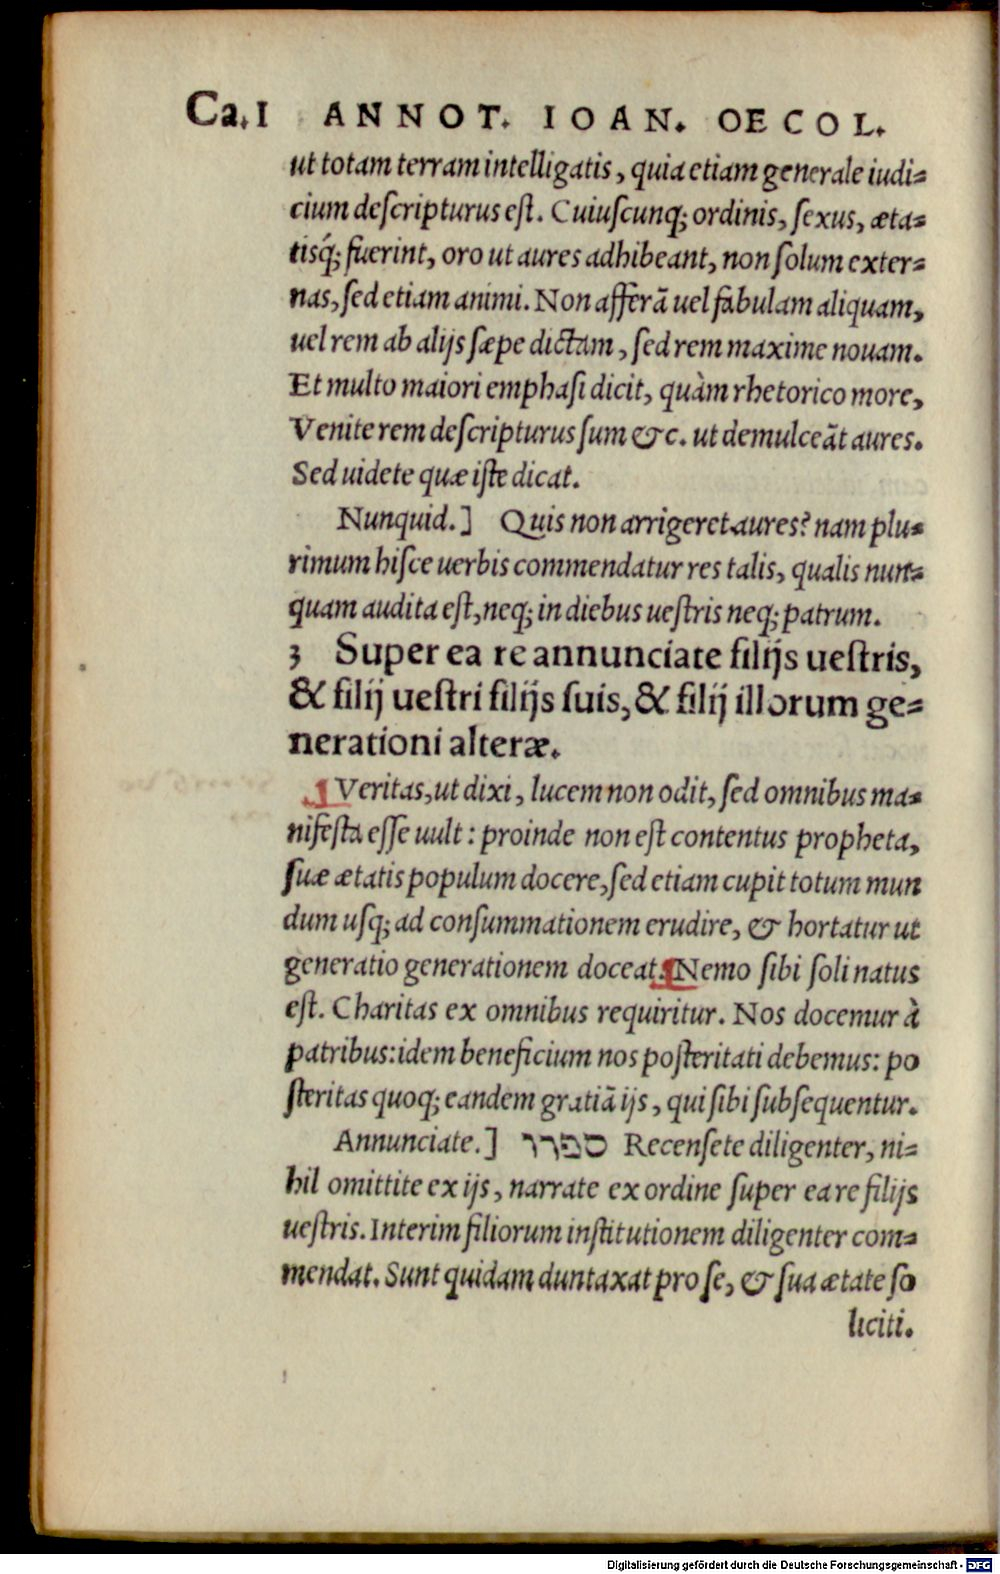 Ca.I ANNOT. IOAN. OECOL.
ut totam terram intelligatis, quia etiam generale iudi-
cium descripturus est. Cuiuscunq; ordinis, sexus, æta-
tisq́; fuerint, oro ut aures adhibeant, non solum exter-
nas, sed etiam animi. Non afferā uel fabulam aliquam,
uel rem ab alijs sæpe dictam, sed rem maxime nouam.
Et multo maiori emphasi dicit, quàm rhetorico more,
Venite rem descripturus sum &c. ut demulceāt aures.
Sed uidete quæ iste dicat.
Nunquid.] Quis non arrigeret aures? nam plu-
rimum hisce uerbis commendatur res talis, qualis nun-
quam audita est, neq; in diebus uestris neq; patrum.
3 Super ea re annunciate filijs uestris,
& filij uestri filijs suis, & filij illorum ge-
nerationi alteræ.
¶ Veritas, ut dixi, lucem non odit, sed omnibus ma-
nifesta esse uult: proinde non est contentus propheta,
suæ ætatis populum docere, sed etiam cupit totum mun
dum usq; ad consummationem erudire, & hortatur ut
generatio generationem doceat. ¶ Nemo sibi soli natus
est. Charitas ex omnibus requiritur. Nos docemur à
patribus: idem beneficium nos posteritati debemus: po
steritas quoq; eandem gratiā ijs, qui sibi subsequentur.
Annunciate.] ספרו Recensete diligenter, ni-
hil omittite ex ijs, narrate ex ordine super ea re filijs
uestris. Interim filiorum institutionem diligenter com-
mendat. Sunt quidam duntaxat pro se, & sua ætate so
liciti.
Digitalisierung gefördert durch die Deutsche Forschungsgemeinschaft - DFG